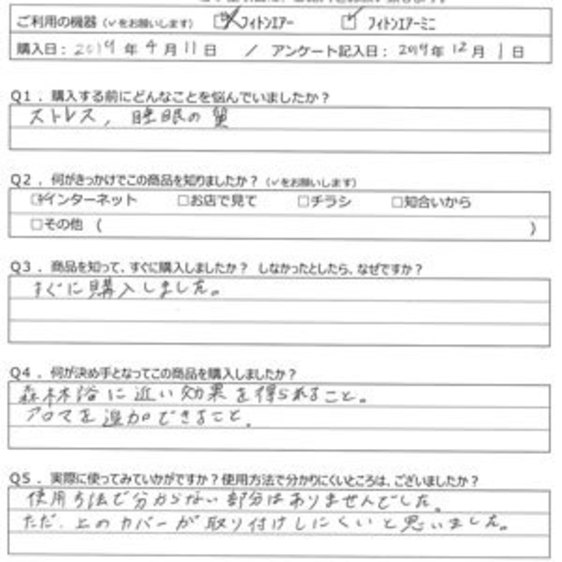 ご利用の機器（✓をお願いします） ☑フィトンエアー ☑フィトンエアーミニ
購入日：2019年4月11日 ／ アンケート記入日：2019年12月1日
Q1．購入する前にどんなことを悩んでいましたか？
ストレス, 睡眠の質
Q2．何がきっかけでこの商品を知りましたか？（✓をお願いします）
☑インターネット □お店で見て □チラシ □知合いから
□その他（ ）
Q3．商品を知って、すぐに購入しましたか？ しなかったとしたら、なぜですか？
すぐに購入しました。
Q4．何が決め手となってこの商品を購入しましたか？
森林浴に近い効果を得られること。
アロマを追加できること.
Q5．実際に使ってみていかがですか？使用方法で分かりにくいところは、ございましたか？
使用方法で分からない部分はありませんでした。
ただ、上のカバーが取り付けしにくいと思いました。